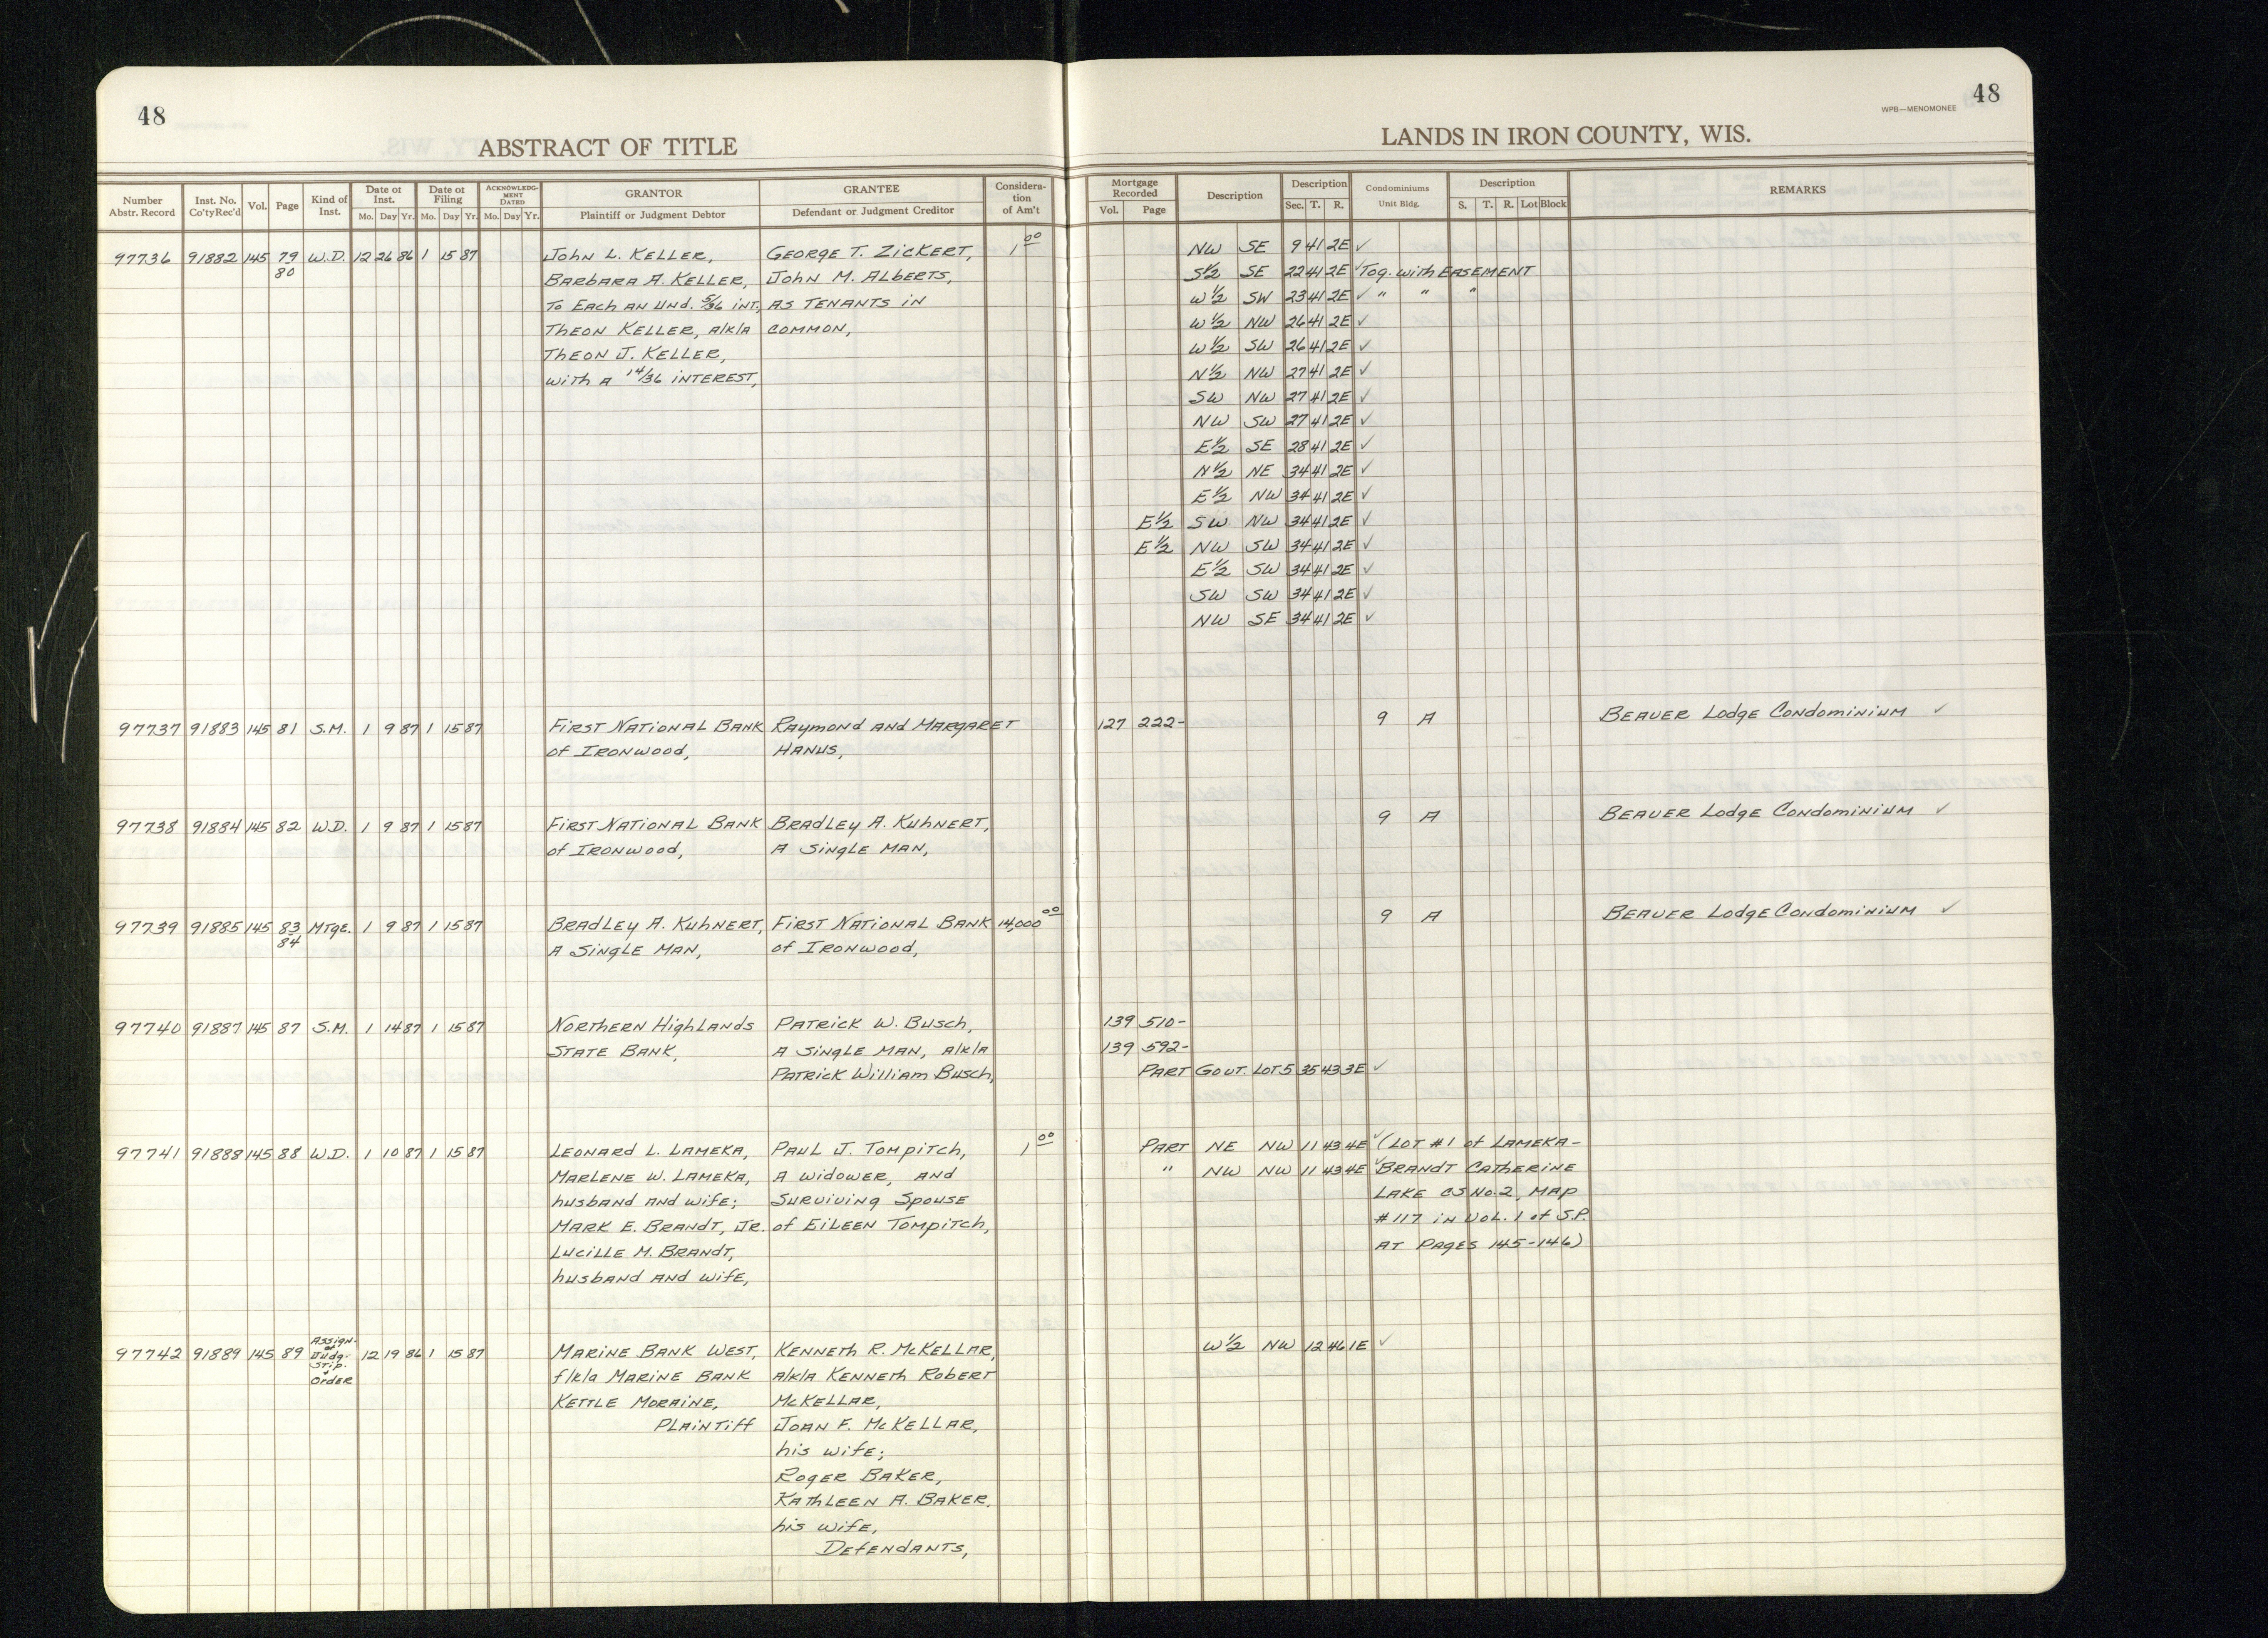 48
48
WPB—MENOMONEE
ABSTRACT OF TITLE
LANDS IN IRON COUNTY, WIS.
Number Abstr. Record | Inst. No. Co'ty Rec'd | Vol. | Page | Kind of Inst. | Date of Inst. Mo. Day Yr. | Date of Filing Mo. Day Yr. | ACKNOWLEDGMENT DATED Mo. Day Yr. | GRANTOR Plaintiff or Judgment Debtor | GRANTEE Defendant or Judgment Creditor | Consideration of Am't | Mortgage Recorded Vol. Page | Description | Description Sec. T. R. | Condominiums Unit Bldg. | Description S. T. R. Lot Block | REMARKS
97736 91882 145 79 W.D. 12 26 86 1 15 87 John L. Keller, George T. Zickert, 1 00 NW SE 9 41 2E ✓
80 Barbara A. Keller, John M. Alberts, S½ SE 22 41 2E ✓ Tog. with EASEMENT
To Each an Und. 5/36 Int, as tenants in W½ SW 23 41 2E ✓ " " "
Theon Keller, a/k/a common, W½ NW 26 41 2E ✓
Theon J. Keller, W½ SW 26 41 2E ✓
with a 14/36 interest, N½ NW 27 41 2E ✓
SW NW 27 41 2E ✓
NW SW 27 41 2E ✓
E½ SE 28 41 2E ✓
N½ NE 34 41 2E ✓
E½ NW 34 41 2E ✓
E½ SW NW 34 41 2E ✓
E½ NW SW 34 41 2E ✓
E½ SW 34 41 2E ✓
SW SW 34 41 2E ✓
NW SE 34 41 2E ✓
97737 91883 145 81 S.M. 1 9 87 1 15 87 First National Bank Raymond and Margaret 127 222- 9 A Beaver Lodge Condominium ✓
of Ironwood, Hanus,
97738 91884 145 82 W.D. 1 9 87 1 15 87 First National Bank Bradley A. Kuhnert, 9 A Beaver Lodge Condominium ✓
of Ironwood, A Single Man,
97739 91885 145 83 Mtge. 1 9 87 1 15 87 Bradley A. Kuhnert, First National Bank 14,000 00 9 A Beaver Lodge Condominium ✓
84 A Single Man, of Ironwood,
97740 91887 145 87 S.M. 1 14 87 1 15 87 Northern Highlands Patrick W. Busch, 139 510-
State Bank, A Single Man, a/k/a 139 592-
Patrick William Busch, Part Gout. Lot 5 35 43 3E ✓
97741 91888 145 88 W.D. 1 10 87 1 15 87 Leonard L. Lameka, Paul J. Tompitch, 1 00 Part NE NW 11 43 4E ✓ (Lot #1 of Lameka-
Marlene W. Lameka, A Widower, and " NW NW 11 43 4E ✓ Brandt Catherine
husband and wife; Surviving Spouse Lake CS No. 2, Map
Mark E. Brandt, Jr. of Eileen Tompitch, #117 in Vol. 1 of S.P.
Lucille M. Brandt, at Pages 145-146)
husband and wife,
97742 91889 145 89 Assign- of Judg- Stip. & Order 12 19 86 1 15 87 Marine Bank West, Kenneth R. McKellar, W½ NW 12 46 1E ✓
f/k/a Marine Bank a/k/a Kenneth Robert
Kettle Moraine, McKellar,
Plaintiff Joan F. McKellar,
his wife;
Roger Baker,
Kathleen A. Baker,
his wife,
Defendants,